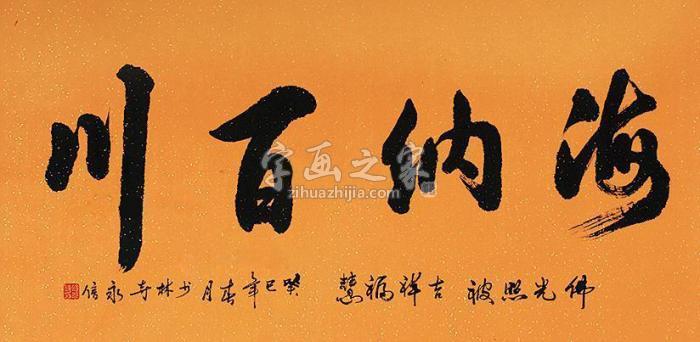 海纳百川
佛光照被 吉祥福慧 癸巳年春月 少林寺永信
字画之家
zihuazhijia.com